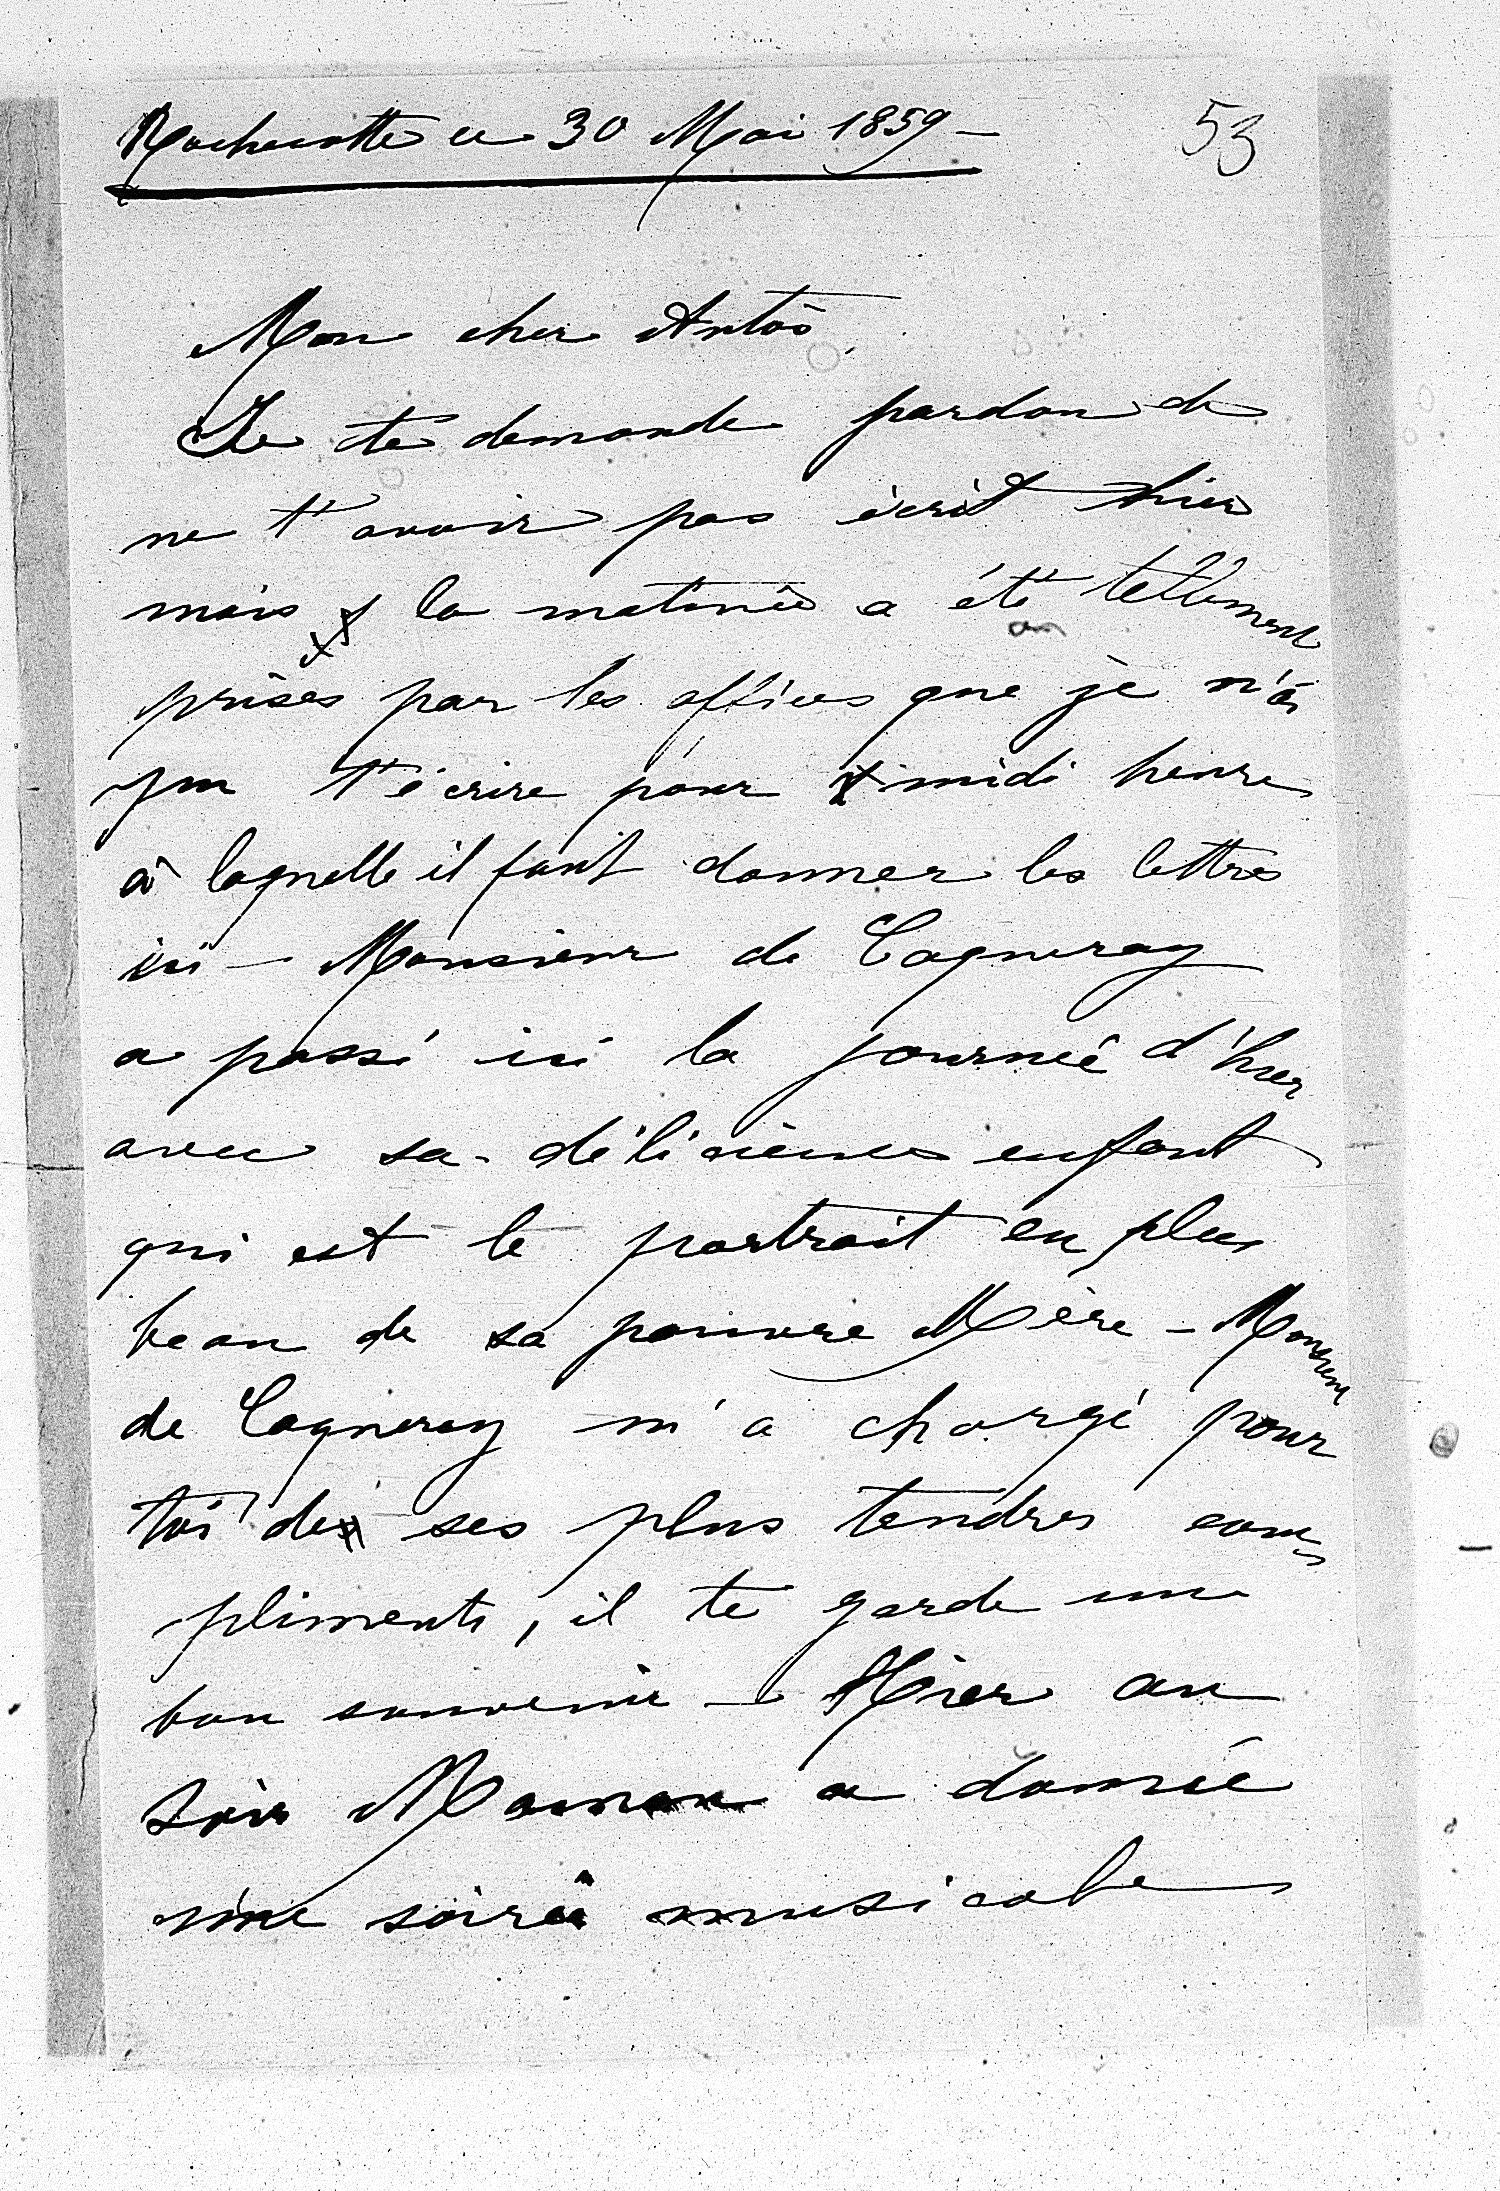 Rochecotte ce 30 Mai 1859 —
53
Mon cher Antoè,
Je te demande pardon de
ne t'avoir pas écrit hier
mais la matinée a été tellement
prises par les offices que je n'ai
pu t'écrire pour midi heure
à laquelle il faut donner les lettres
ici — Monsieur de Cagneray
a passé ici la journée d'hier
avec sa délicieuse enfant
qui est le portrait en plus
beau de sa pauvre Mère — Monsieur
de Cagneray m'a chargé pour
toi de ses plus tendres com-
pliments, il te garde un
bon souvenir — Hier au
soir Maman a donné
une soirée musicale